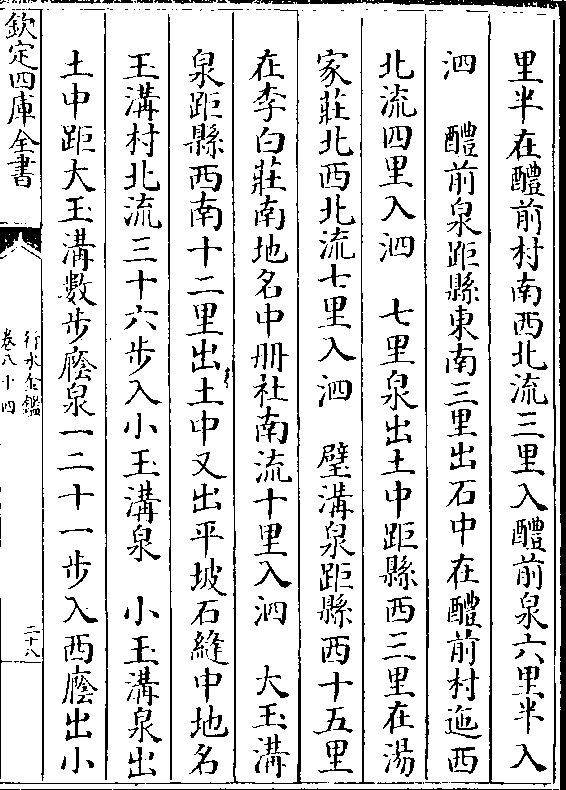 里半在醴前村南西北流三里入醴前泉六里半入
泗　醴前泉距縣東南三里出石中在醴前村迤西
北流四里入泗　七里泉出土中距縣西三里在湯
家莊北西北流七里入泗　璧溝泉距縣西十五里
在李白莊南地名中册社南流十里入泗　大玉溝
泉距縣西南十二里出土中又出平坡石縫中地名
玉溝村北流三十六步入小玉溝泉　小玉溝泉出
土中距大玉溝數步䕃泉一二十一步入西䕃出小
欽定四庫全書
行水金鑑
卷八十四
二十八